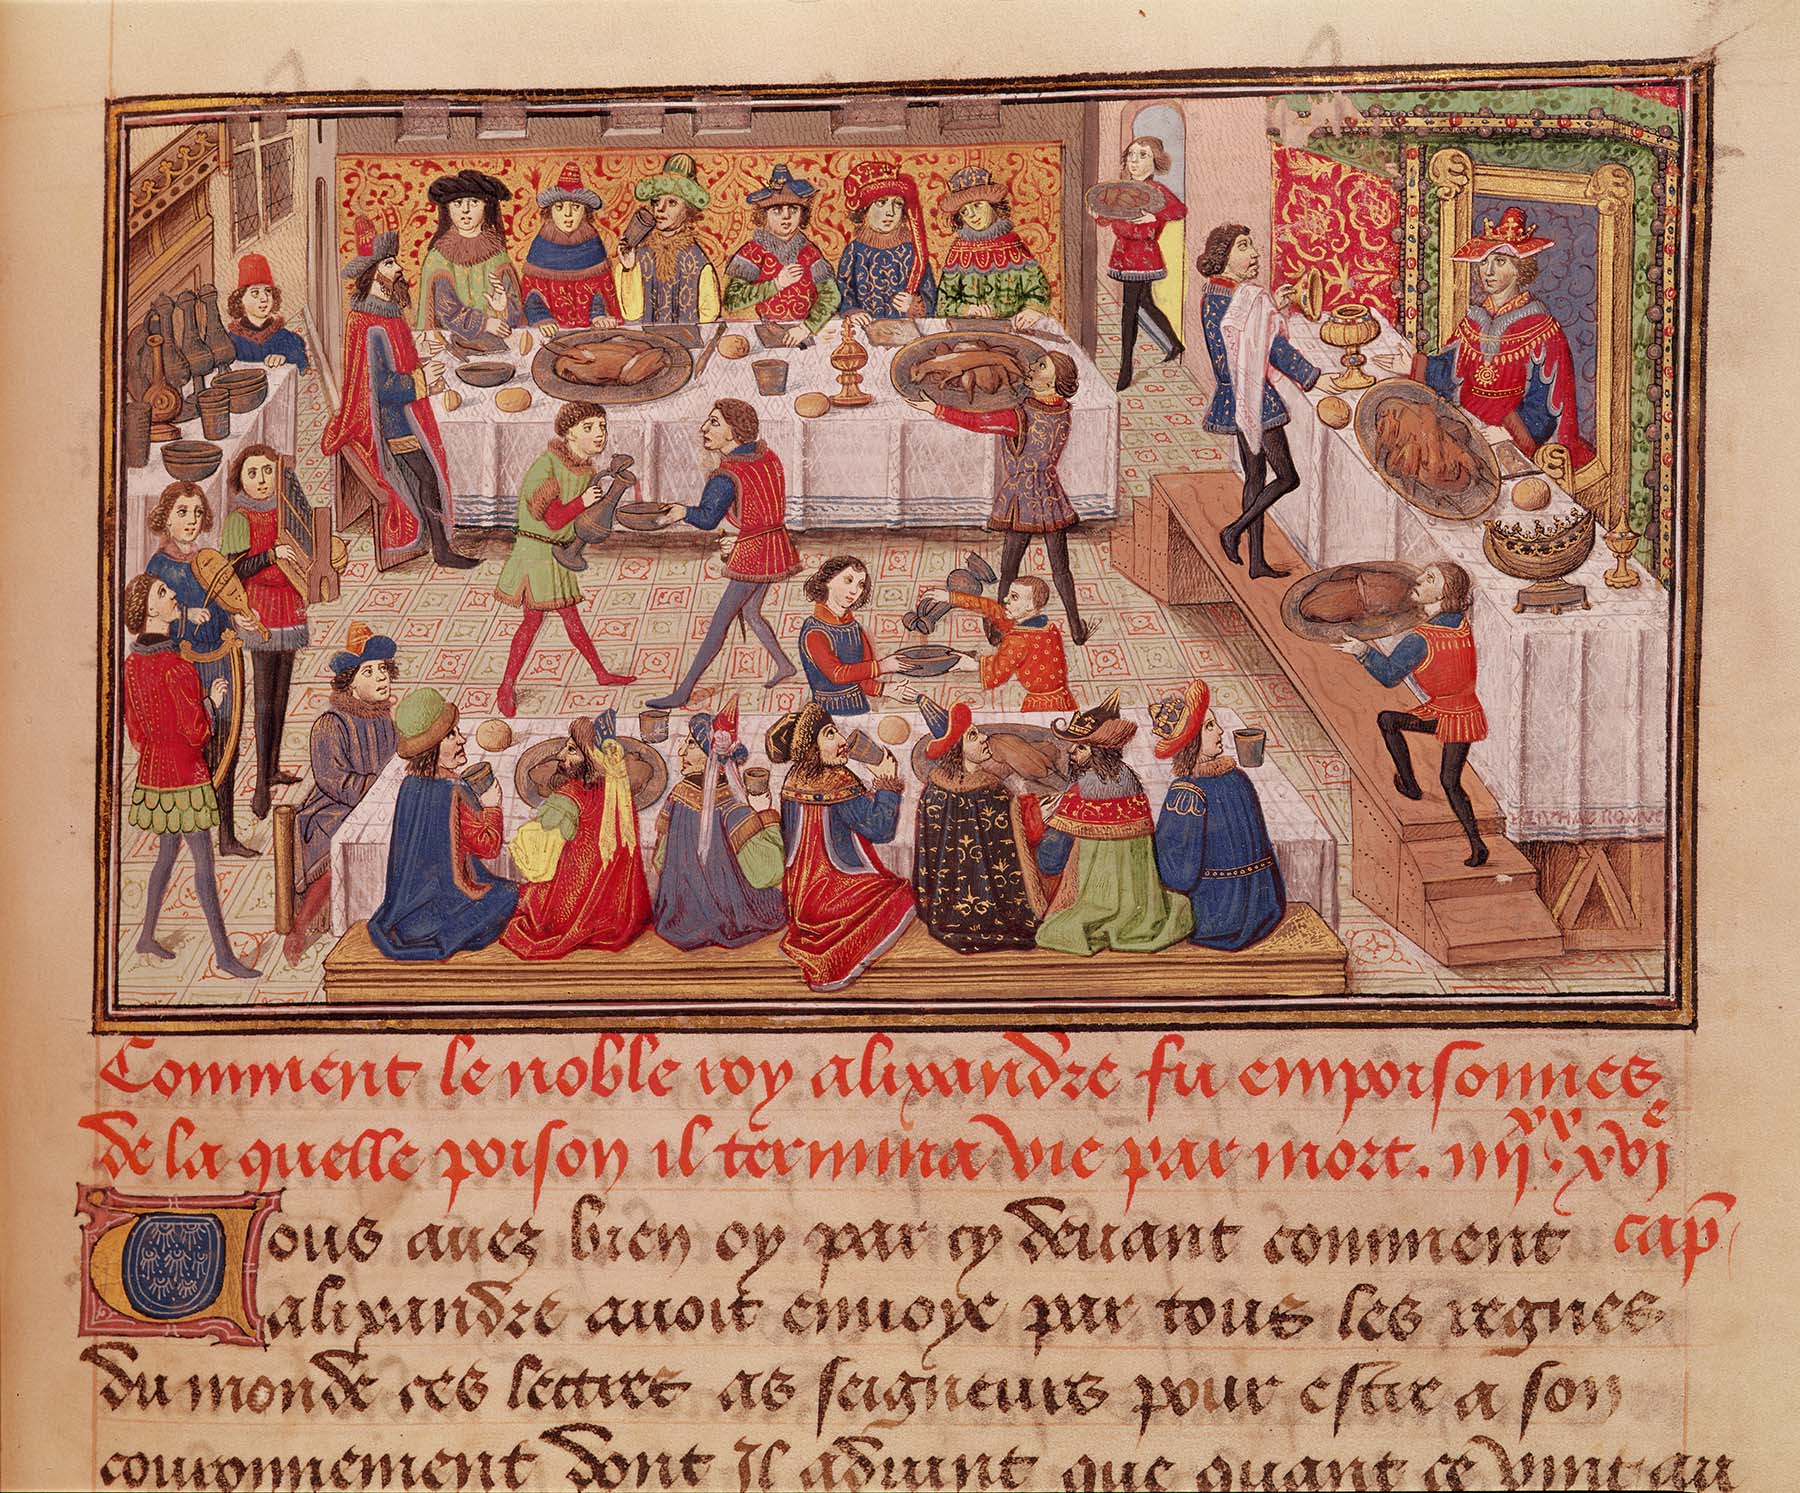 Comment le noble roy alixandre fu emporsonnes
de la quelle poison il termina vie par mort. iiijxx xvje
cap
Vous auez bien oy par cy deuant comment
alixandre auoit enuoye par tous les regnes
du monde ces lettres as seigneurs pour estre a son
couronnement dont Il aduint que quant ce vint au